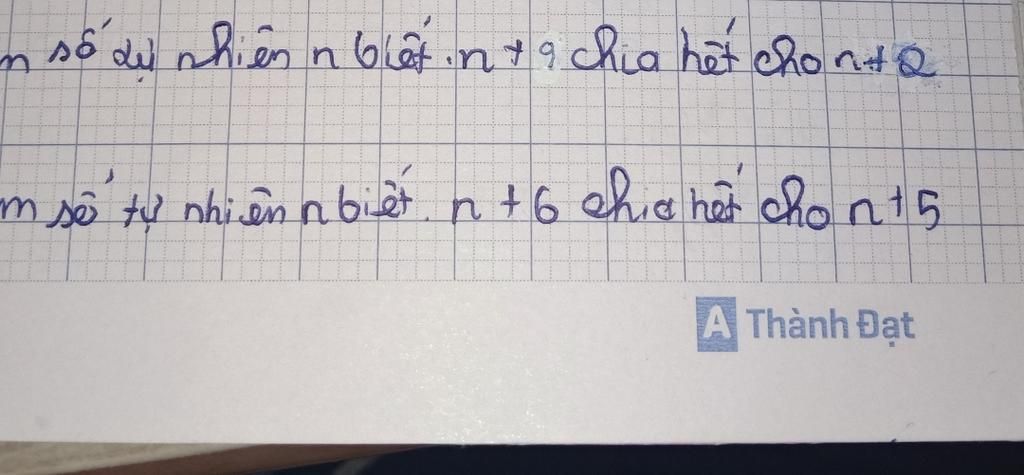 m số tự nhiên n biết. n + 9 chia hết cho n + 2
m số tự nhiên n biết. n + 6 chia hết cho n + 5
A Thành Đạt